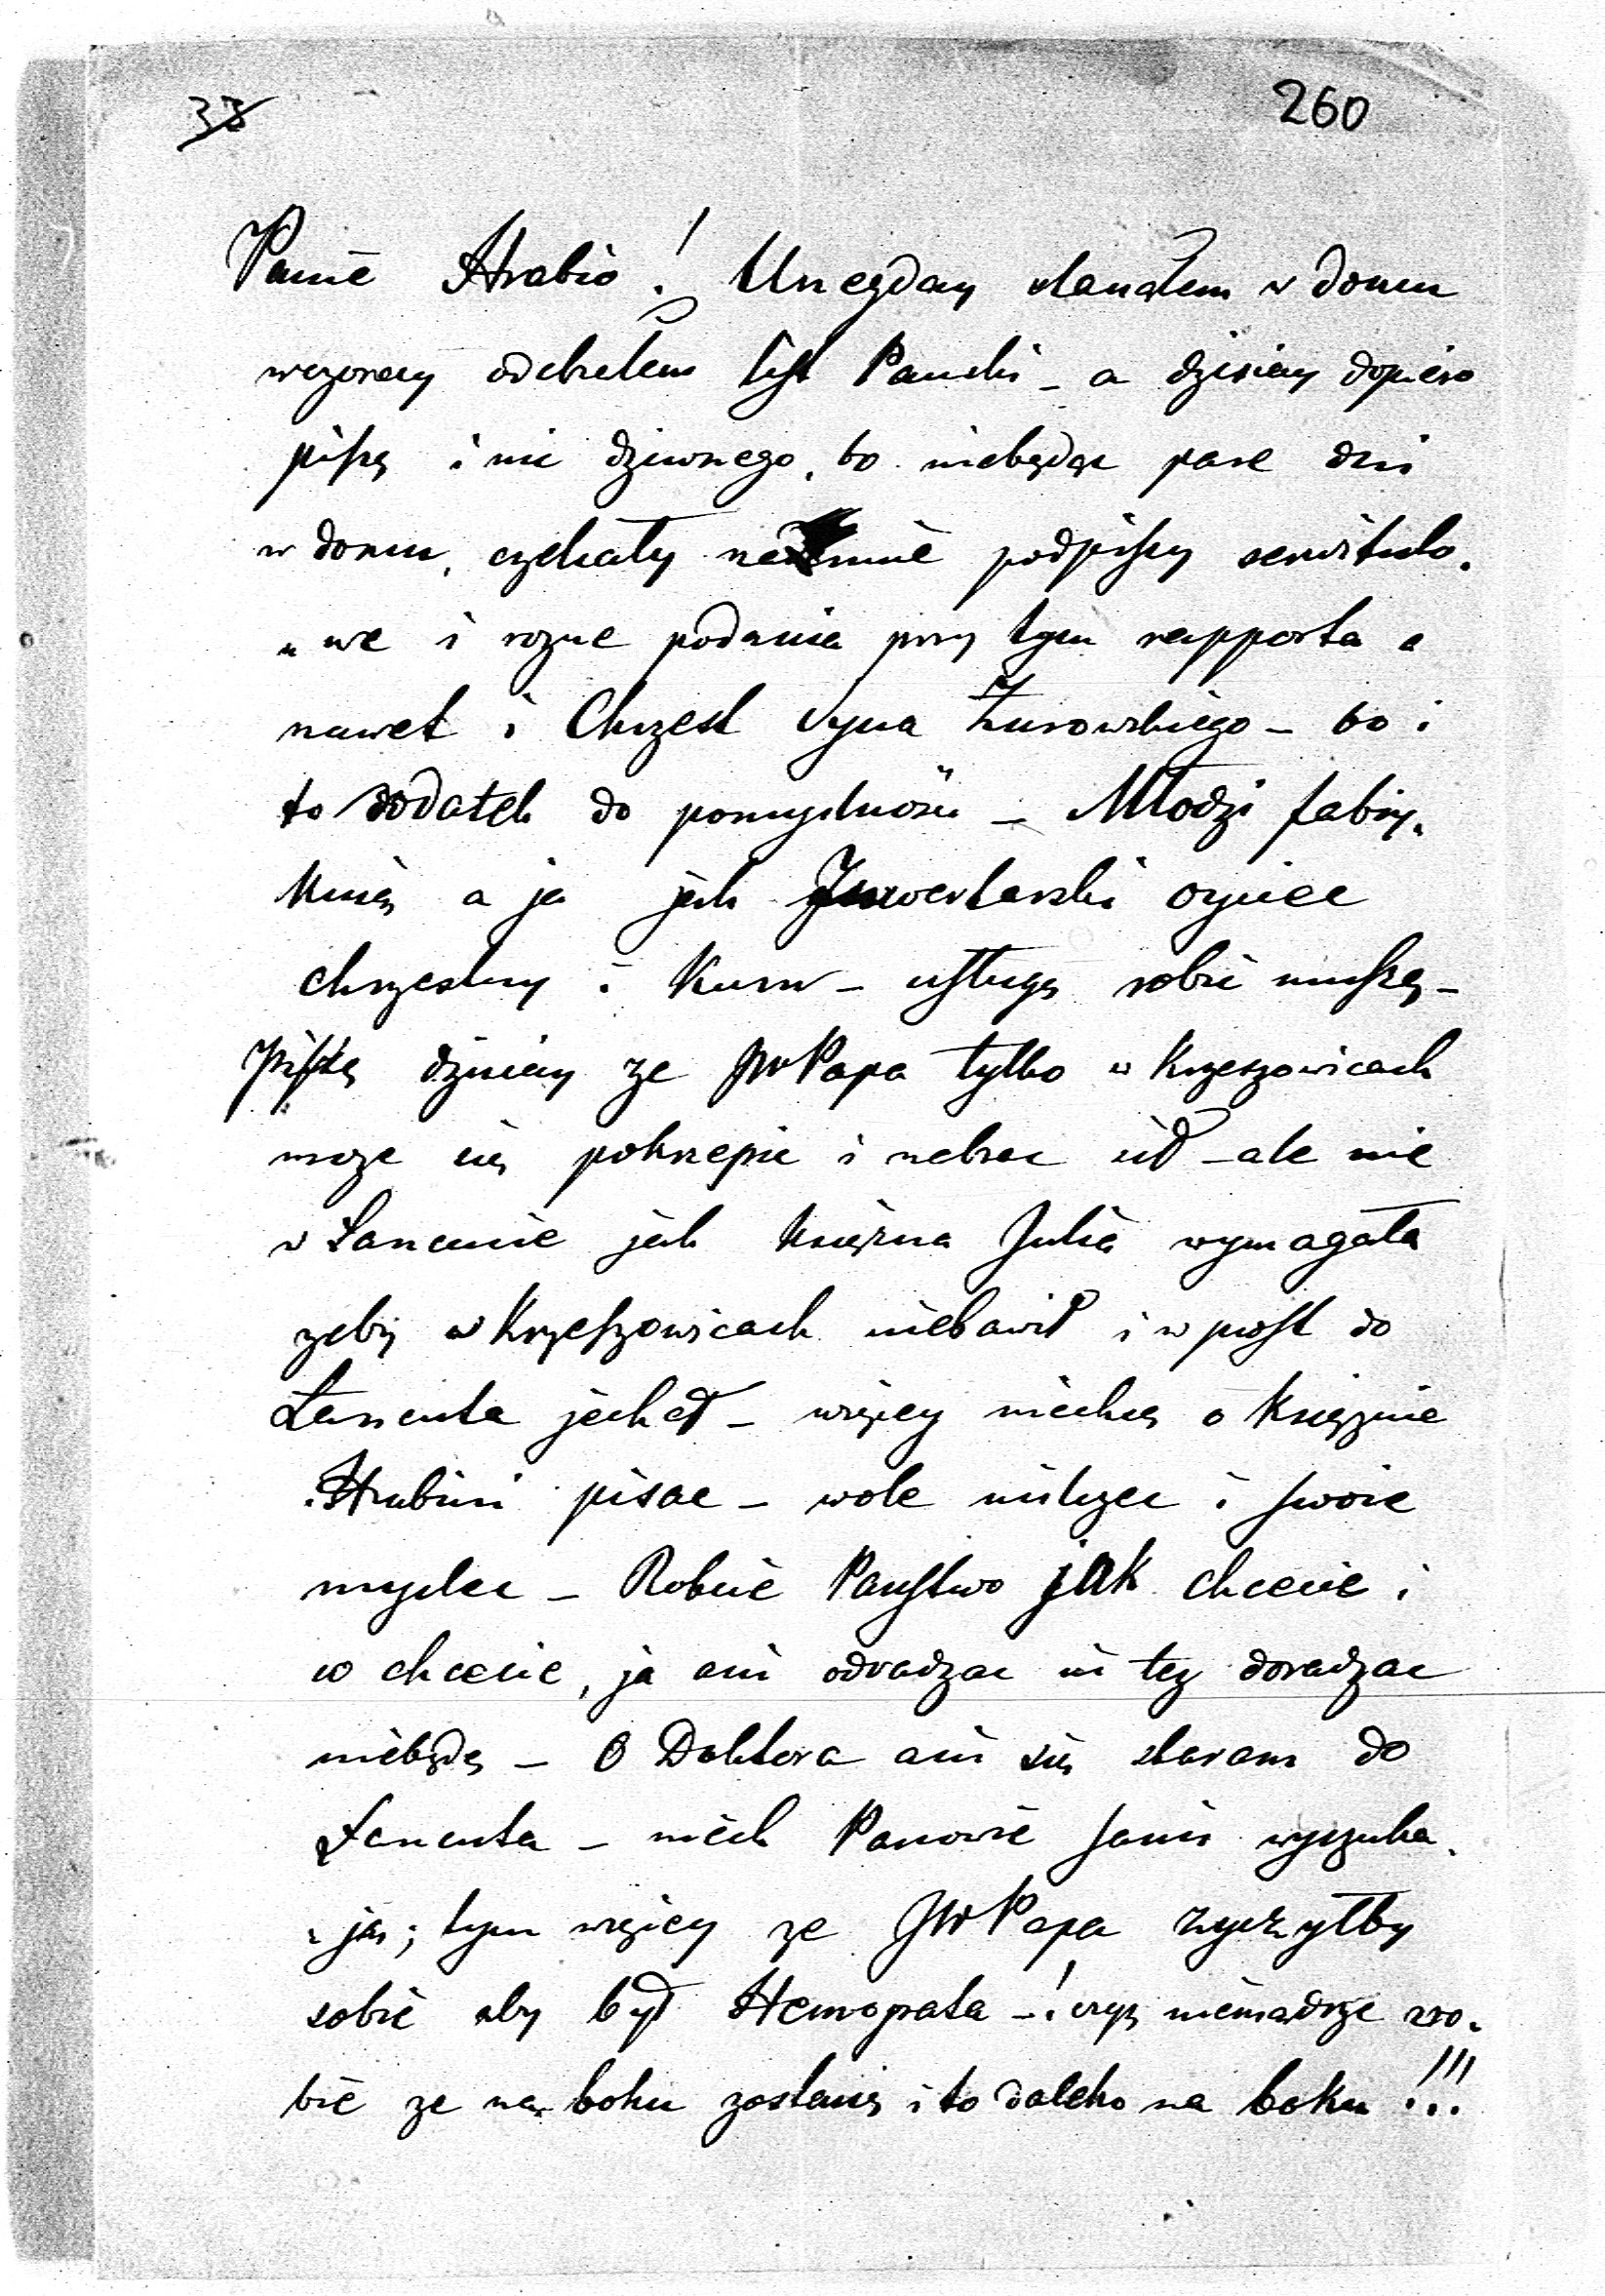 33 260
Panie Hrabio! Unegday stanąłem w domu
wczoray odebrałem list Pański – a dzisiay dopiero
piszę i nic dziwnego, bo niebędąc pare dni
w domu, czekały na mnie podpisy serwituto.
we i rozne podania przy tym rapporta a
nawet i Chrzest Syna Żurowskiego – bo i
to dodatek do pomyslnosci – Młodzi fabry.
kuią a ja jak oyciec
chrzestny i Kum – usługę robić muszę –
Piszę dzisiay ze JWPapa tylko w Krzeszowicach
moze się pokrzepic i nabrac sił – ale nie
w Łancucie jak Księżna Julia wymagała
zeby w Krzeszowicach niebawił i wprost do
Łancuta jechał – więcey niechcę o Księznie
Hrabini pisac – wole milczec i swoie
myslec – Robcie Państwo jak chcecie i
co chcecie, ja ani odradzac ni tez doradzac
niebędę – O Doktora ani się staram do
Łancuta – niech Panowie sami wyszuka.
ją; tym więcey ze JWPapa zyczyłby
sobie aby był Hemopata –! czyz niemądrze zro.
bie ze na boku zostanę i to daleko na boku!!!